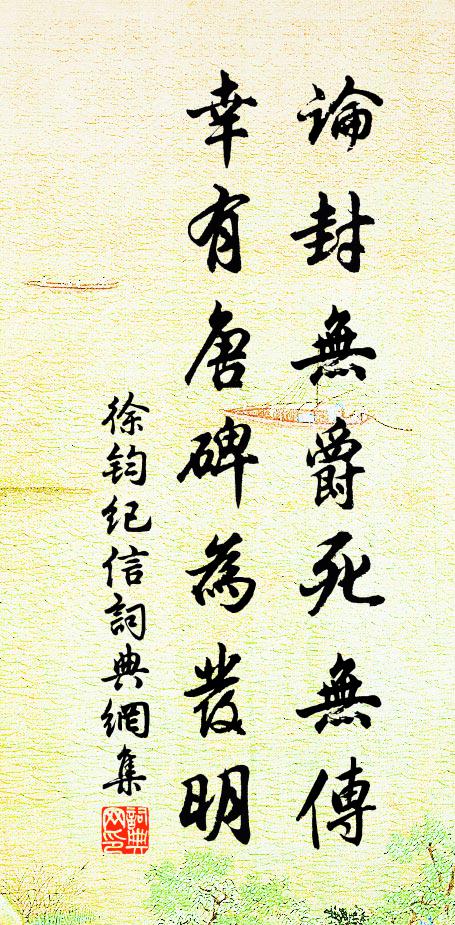 論封無爵死無傳
幸有唐碑為發明
徐鈞紀信詞典網集
詞典网印